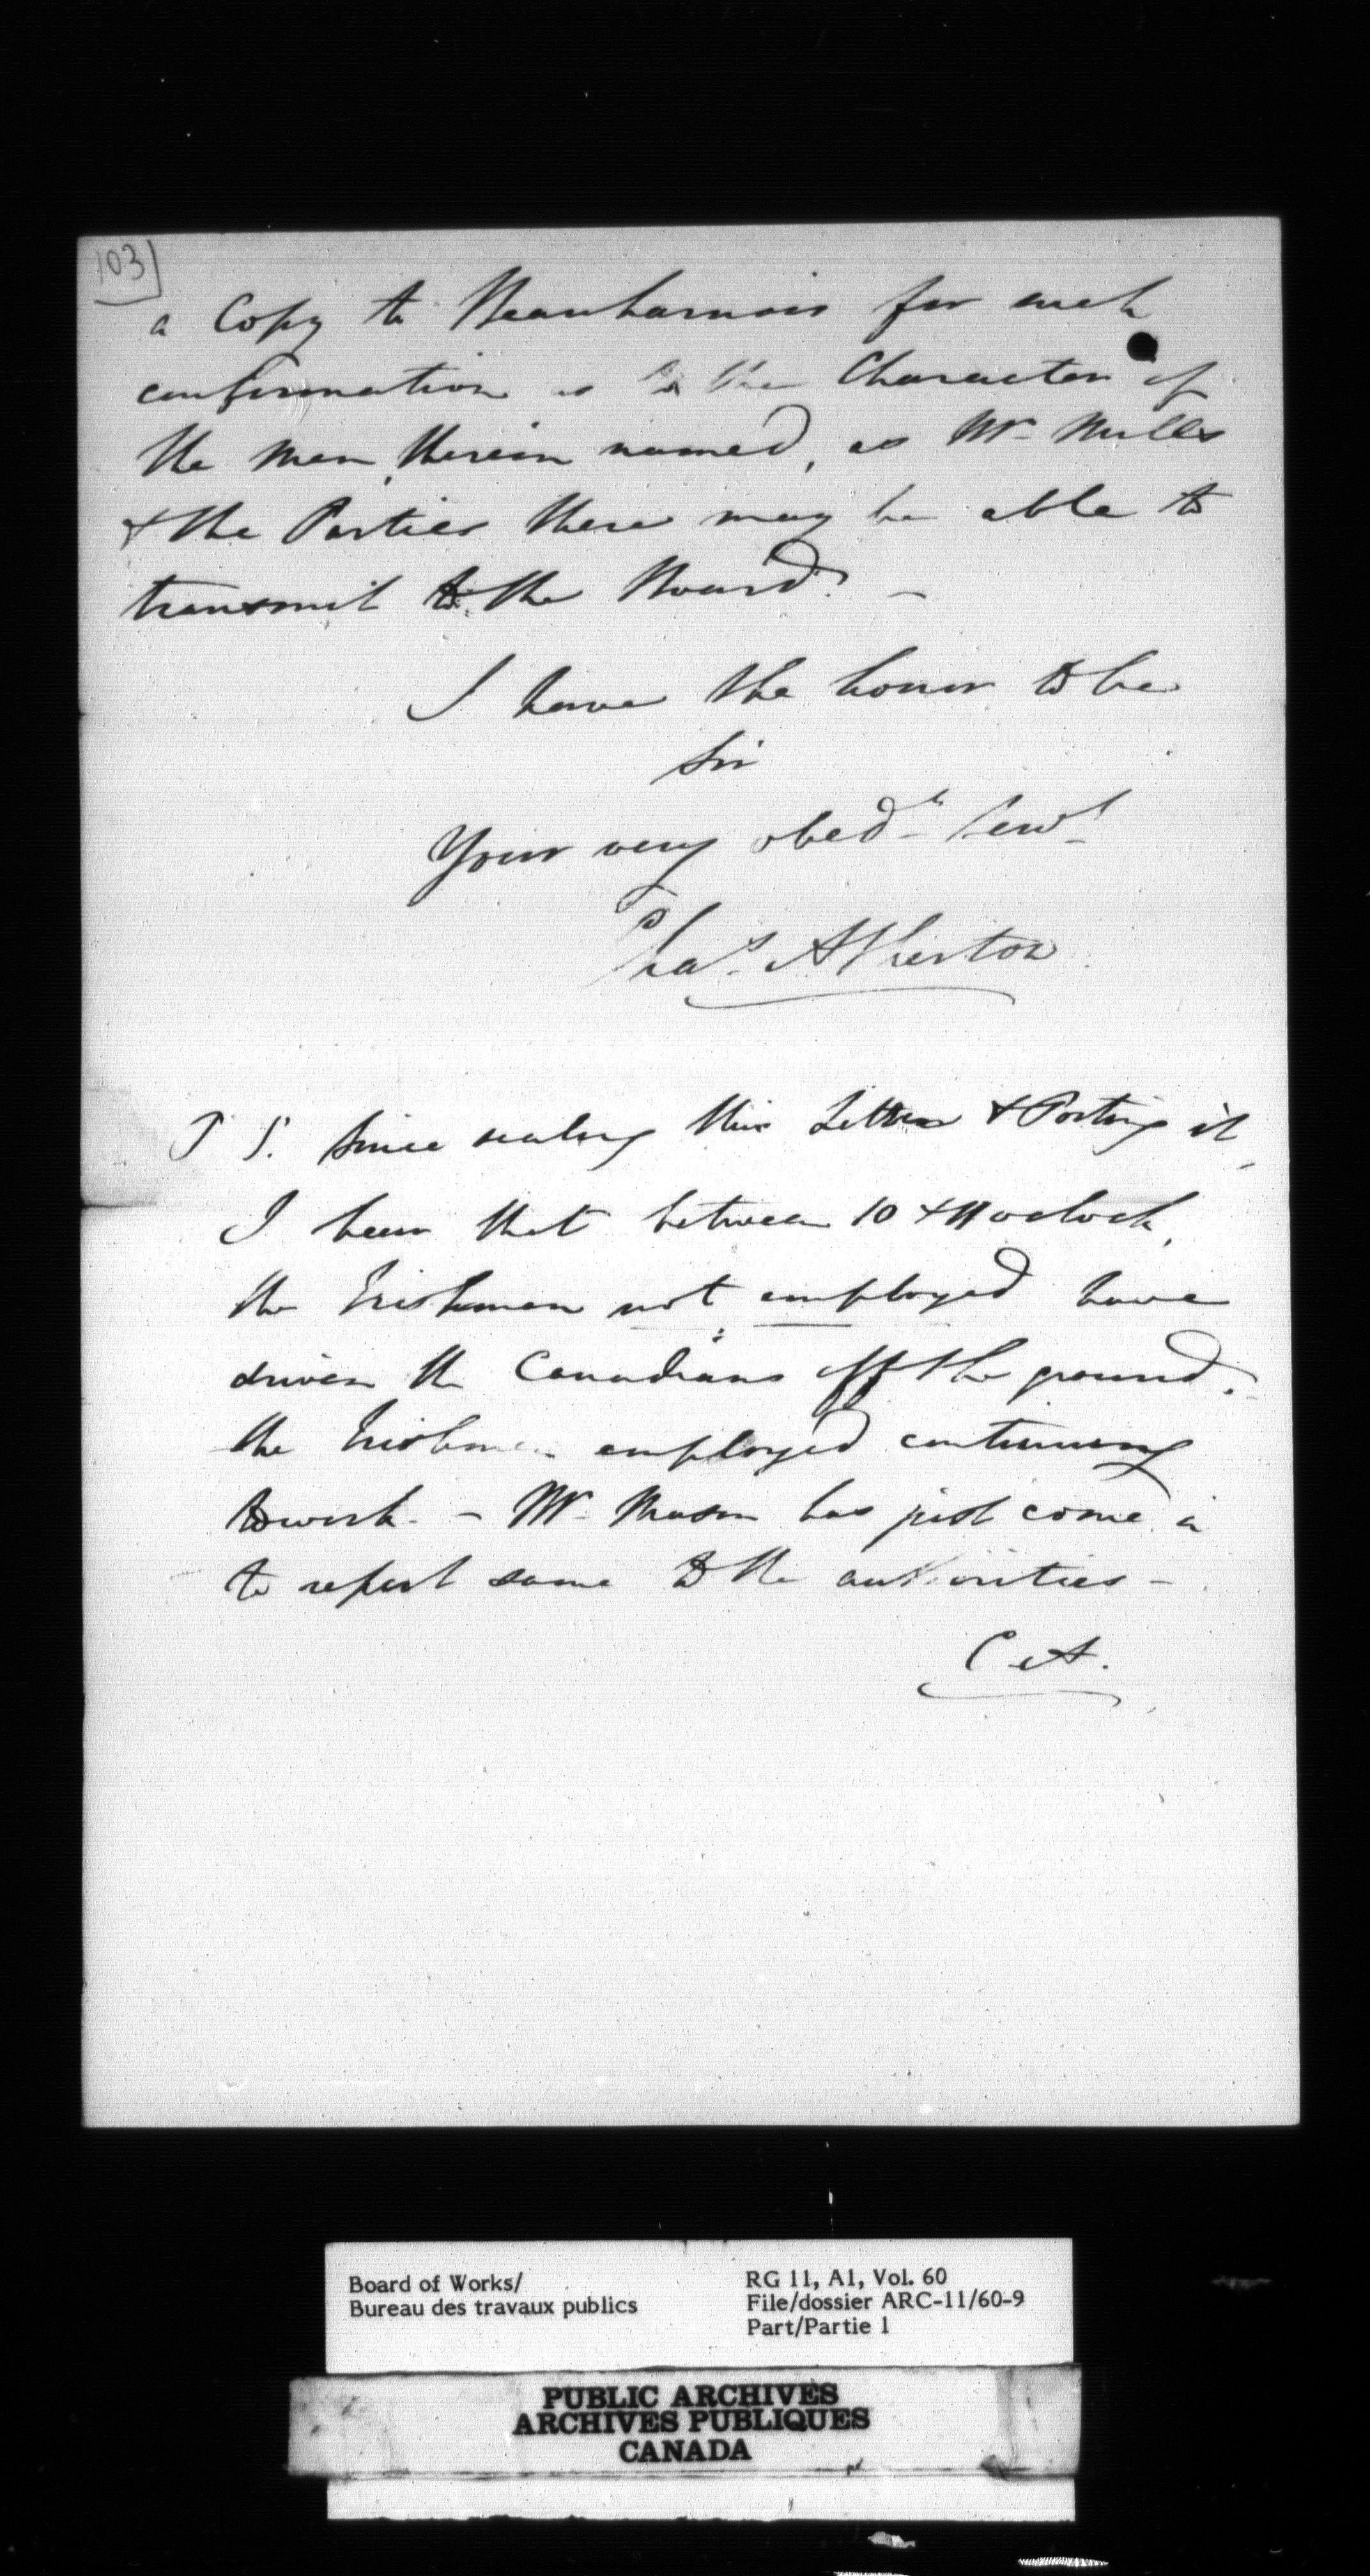 103
a Copy to Beauharnois for such
confirmation as to the Character of
the Men, therein named, as Mr Mills
& the Parties there may be able to
transmit to the Board. —
I have the honor to be
Sir
Your very obedt Servt
Chas. Atherton
P S. Since sealing this Letter & Posting it,
I hear that between 10 & 11 oclock,
the Irishmen not employed have
driven the Canadians off the ground.
the Irishmen employed continuing
to work. — Mr Mason has just come in
to report same to the authorities —
C A.
Board of Works/
Bureau des travaux publics
RG 11, A1, Vol. 60
File/dossier ARC-11/60-9
Part/Partie 1
PUBLIC ARCHIVES
ARCHIVES PUBLIQUES
CANADA